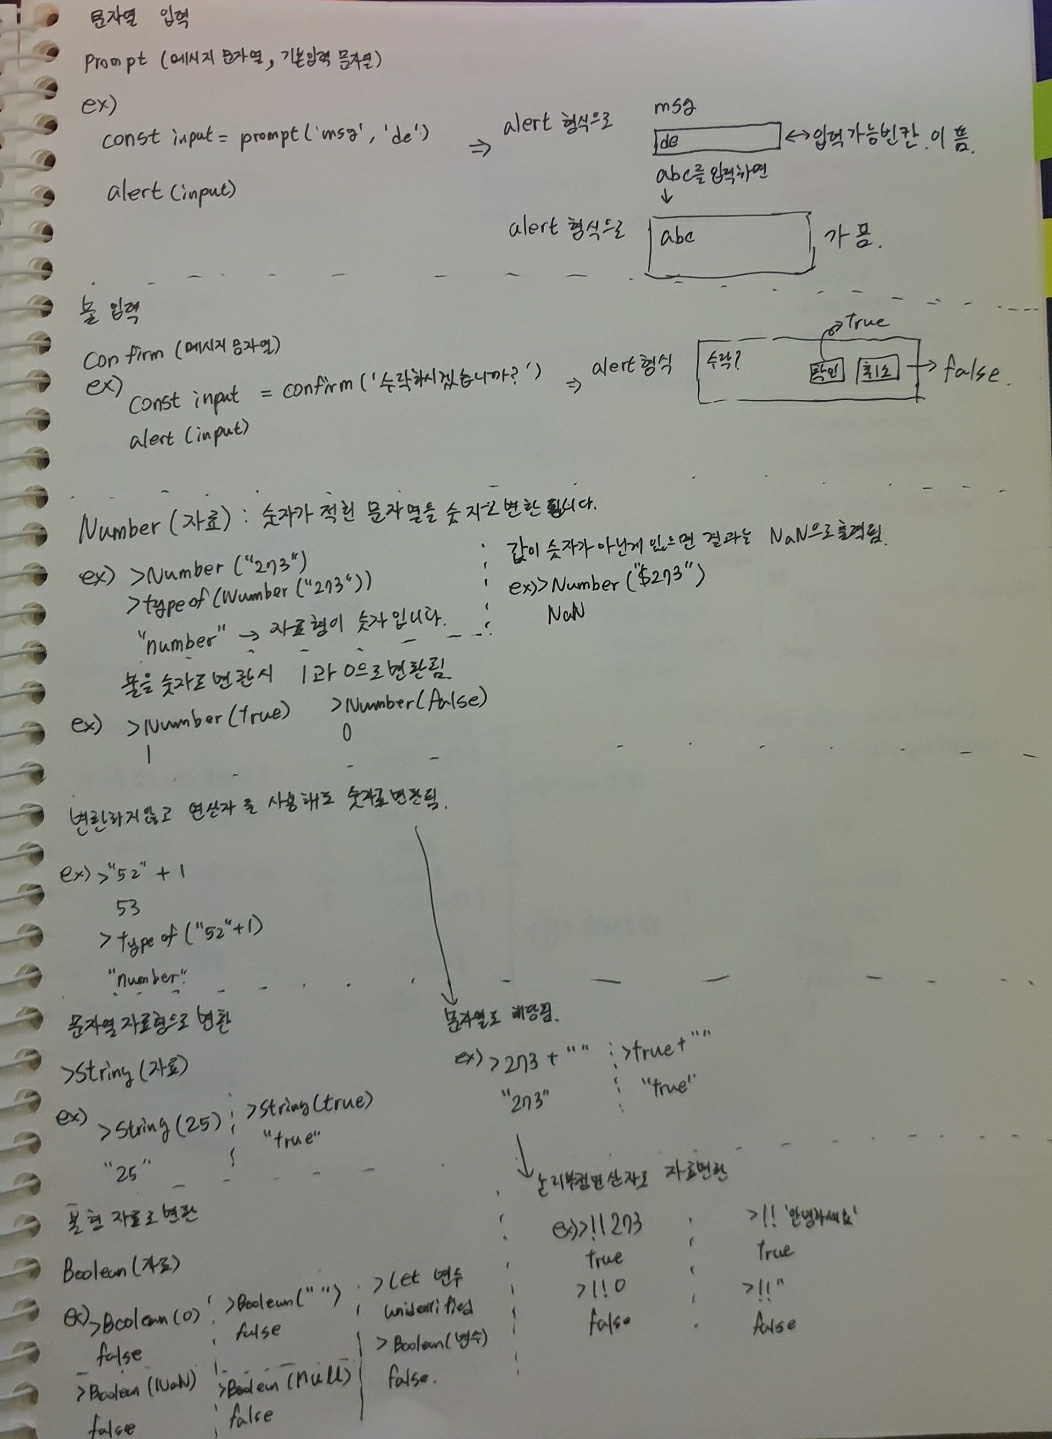 문자열 입력
Prompt (메시지 문자열, 기본입력 문자열)
ex)
const input = prompt('msg', 'de') ⇒ alert 형식으로
msg
de ↔ 입력가능빈칸 이 뜸.
abc를 입력하면
↓
alert(input)
alert 형식으로 abc 가 뜸.
불 입력
Confirm (메시지 문자열)
ex)
const input = confirm('수락하시겠습니까?') ⇒ alert 형식
수락? 확인 취소
true
→ false.
alert(input)
Number(자료) : 숫자가 적힌 문자열을 숫자로 변환 됩니다.
ex) >Number("273")
>typeof(Number("273"))
"number" → 자료형이 숫자입니다.
값이 숫자가 아닌게 있으면 결과는 NaN으로 출력됨.
ex)>Number("$273")
NaN
불을 숫자로 변환시 1과 0으로 변환됨
ex) >Number(true) >Number(false)
1 0
변환하지않고 연산자를 사용해도 숫자로변환됨.
ex) >"52" + 1
53
>typeof("52"+1)
"number"
문자열 자료형으로 변환
>String(자료)
ex) >String(25) >String(true)
"25" "true"
문자열도 해당됨.
ex) >273 + "" >true + ""
"273" "true"
불 형 자료로 변환
Boolean(자료)
ex) >Boolean(0) >Boolean("") >Let 변수
false false
>Boolean(변수)
>Boolean(NaN) >Boolean(null) false.
false false
논리부정연산자로 자료변환
ex)>!!273 >!!'안녕하세요'
true true
>!!0 >!!''
false false